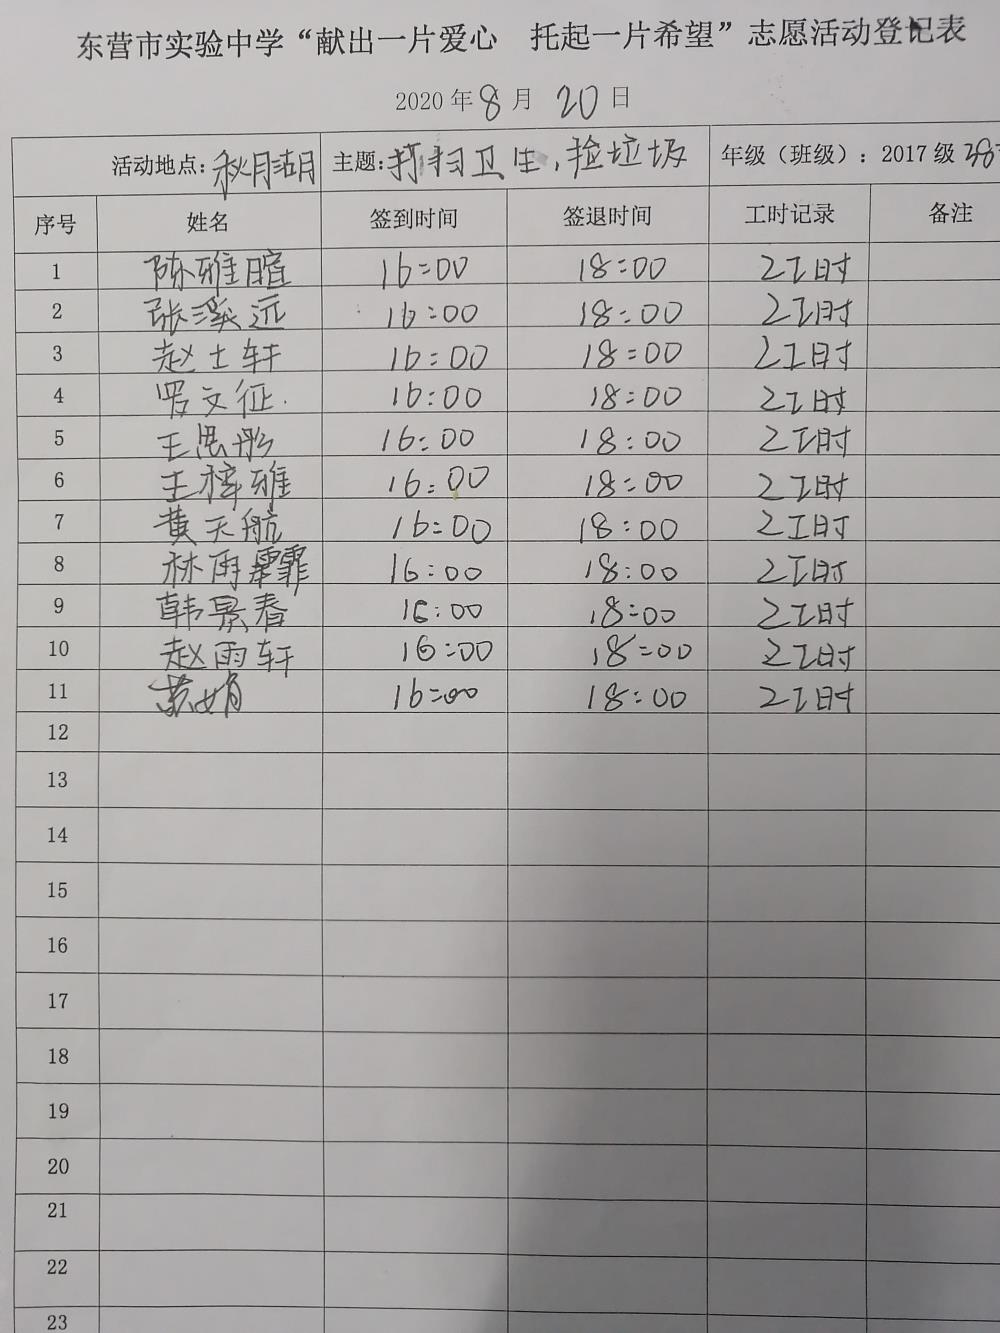 东营市实验中学“献出一片爱心 托起一片希望”志愿活动登记表
2020年8月20日
活动地点:秋月湖 主题:打扫卫生,捡垃圾 年级(班级):2017级
序号 姓名 签到时间 签退时间 工时记录 备注
1 陈雅暄 16:00 18:00 2工时
2 张溪远 16:00 18:00 2工时
3 赵士轩 16:00 18:00 2工时
4 罗文征. 16:00 18:00 2工时
5 王思彤 16:00 18:00 2工时
6 王梓雅 16:00 18:00 2工时
7 黄天航 16:00 18:00 2工时
8 林雨霏 16:00 18:00 2工时
9 韩景春 16:00 18:00 2工时
10 赵雨轩 16:00 18:00 2工时
11 苏娟 16:00 18:00 2工时
12
13
14
15
16
17
18
19
20
21
22
23